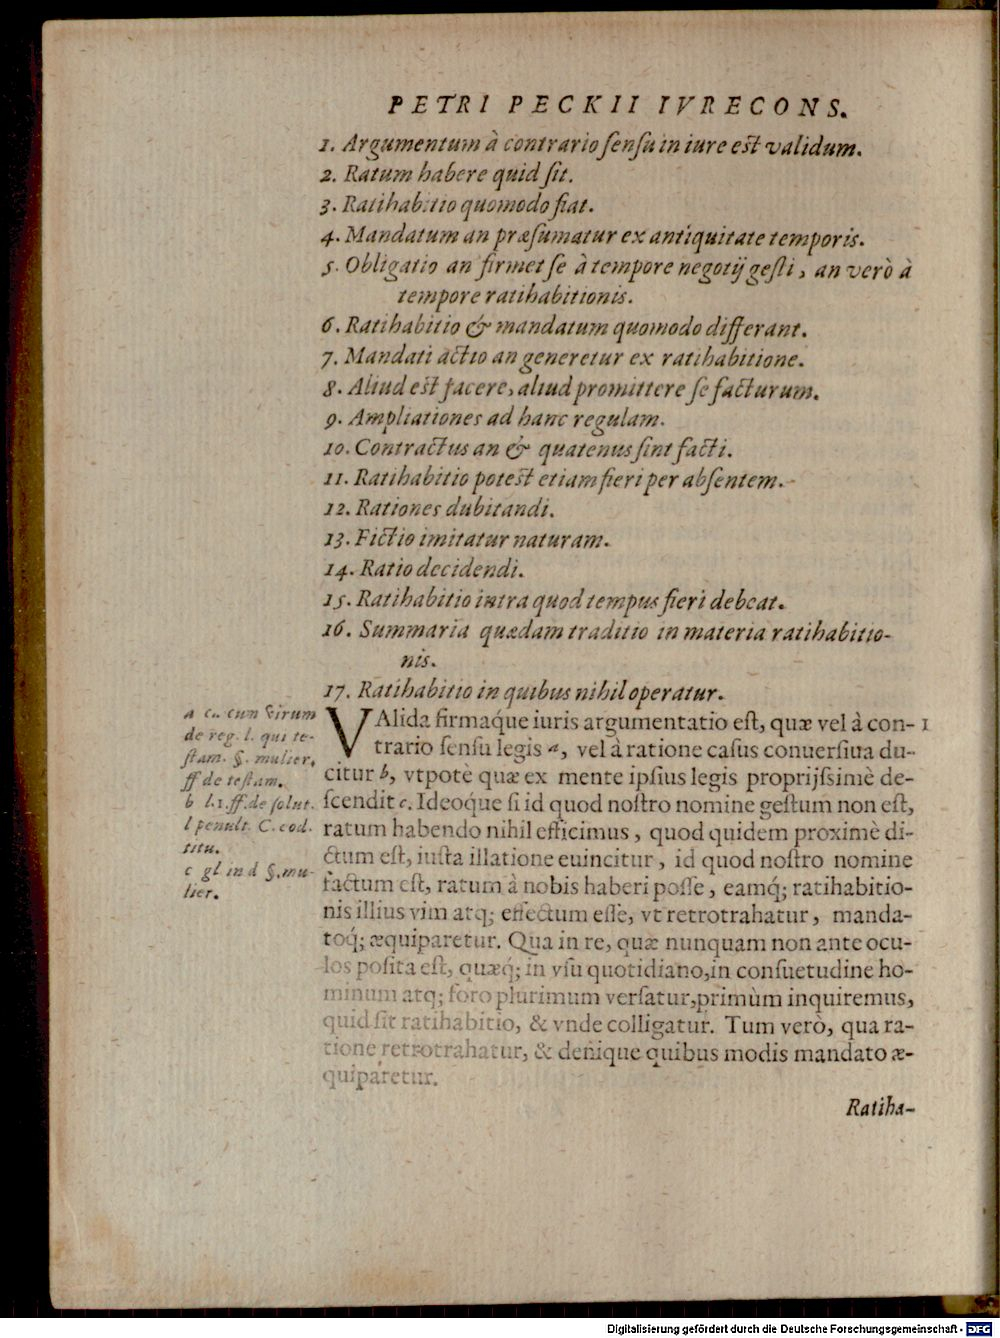 PETRI PECKII IVRECONS.
1. Argumentum à contrario ſenſu in iure eſt validum.
2. Ratum habere quid ſit.
3. Ratihabitio quomodo fiat.
4. Mandatum an præſumatur ex antiquitate temporis.
5. Obligatio an firmet ſe à tempore negotij geſti, an verò à
tempore ratihabitionis.
6. Ratihabitio & mandatum quomodo differant.
7. Mandati actio an generetur ex ratihabitione.
8. Aliud eſt facere, aliud promittere ſe facturum.
9. Ampliationes ad hanc regulam.
10. Contractus an & quatenus ſint facti.
11. Ratihabitio poteſt etiam fieri per abſentem.
12. Rationes dubitandi.
13. Fictio imitatur naturam.
14. Ratio decidendi.
15. Ratihabitio intra quod tempus fieri debeat.
16. Summaria quædam traditio in materia ratihabitio-
nis.
17. Ratihabitio in quibus nihil operatur.
a c. cum virum
de reg. l. qui te-
ſtam. §. mulier.
ff de teſtam.
b l.1.ff.de ſolut.
l penult. C. eod.
titu.
c gl in d §.mu-
lier.
VAlida firmaque iuris argumentatio eſt, quæ vel à con- 1
trario ſenſu legis a, vel à ratione caſus conuerſiua du-
citur b, vtpotè quæ ex mente ipſius legis proprijſsimè de-
ſcendit c. Ideoque ſi id quod noſtro nomine geſtum non eſt,
ratum habendo nihil efficimus, quod quidem proximè di-
ctum eſt, iuſta illatione euincitur, id quod noſtro nomine
factum eſt, ratum à nobis haberi poſſe, eamq́; ratihabitio-
nis illius vim atq; effectum eſſe, vt retrotrahatur, manda-
toq́; æquiparetur. Qua in re, quæ nunquam non ante ocu-
los poſita eſt, quæq́; in vſu quotidiano, in conſuetudine ho-
minum atq; foro plurimum verſatur, primùm inquiremus,
quid ſit ratihabitio, & vnde colligatur. Tum verò, qua ra-
tione retrotrahatur, & denique quibus modis mandato æ-
quiparetur.
Ratiha-
Digitalisierung gefördert durch die Deutsche Forschungsgemeinschaft - DFG